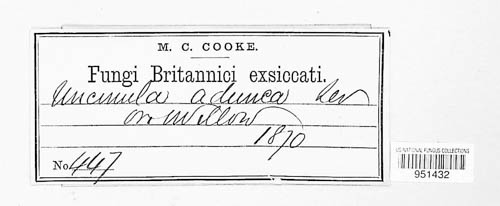 M. C. COOKE.
Fungi Britannici exsiccati.
Uncinula adunca Lev
on Willow
1870
No. 447
US NATIONAL FUNGUS COLLECTIONS
951432